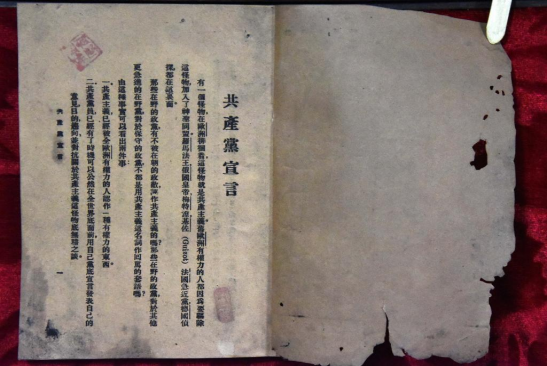 共產黨宣言
有一個怪物，在歐洲徘徊着，這怪物就是共產主義。舊歐洲有權力的人都因爲要驅除
這怪物，加入了神聖同盟。羅馬法王，俄國皇帝，梅特湼，基佐（Guizot），法國急進黨，德國偵
探，都在這裏面。
那些在野的政黨，有不被在朝的政敵，誣作共產主義的嗎？那些在野的政黨，對於其他
更急進的在野黨，對於保守的政黨，不都是用共產主義這名詞作回罵的套語嗎？
由這種事實可以看出兩件事：
一、共產主義已經被全歐洲有權力的人認作一種有權力的東西。
二、共產黨員已經有了時機可以公然在全世界底面前，用自己黨底宣言發表自己的
意見，目的，趨向，並對抗關於共產主義這怪物底無稽之談。
共產黨宣言
一